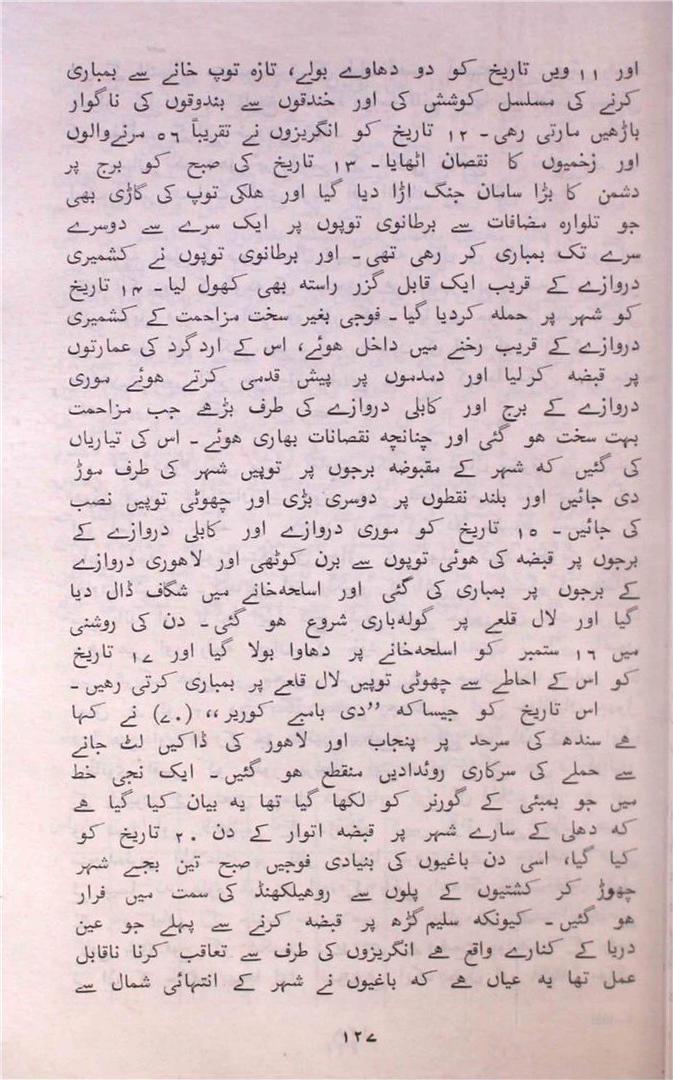 اور ۱۱ ویں تاریخ کو دو دھاوے بولے، تازہ توپ خانے سے بمباری
کرنے کی مسلسل کوشش کی اور خندقوں سے بندوقوں کی ناگوار
باڑھیں مارتی رھی۔ ۱۲ تاریخ کو انگریزوں نے تقریباً ۵۶ مرنےوالوں
اور زخمیوں کا نقصان اٹھایا۔ ۱۳ تاریخ کی صبح کو برج پر
دشمن کا بڑا سامان جنگ اڑا دیا گیا اور ھلکی توپ کی گاڑی بھی
جو تلوارہ مضافات سے برطانوی توپوں پر ایک سرے سے دوسرے
سرے تک بمباری کر رھی تھی۔ اور برطانوی توپوں نے کشمیری
دروازے کے قریب ایک قابل گزر راستہ بھی کھول لیا۔ ۱۴ تاریخ
کو شہر پر حملہ کردیا گیا۔ فوجی بغیر سخت مزاحمت کے کشمیری
دروازے کے قریب رخنے میں داخل ھوئے، اس کے اردگرد کی عمارتوں
پر قبضہ کرلیا اور دمدموں پر پیش قدمی کرتے ھوئے موری
دروازے کے برج اور کابلی دروازے کی طرف بڑھے جب مزاحمت
بہت سخت ھو گئی اور چنانچہ نقصانات بھاری ھوئے۔ اس کی تیاریاں
کی گئیں کہ شہر کے مقبوضہ برجوں پر توپیں شہر کی طرف موڑ
دی جائیں اور بلند نقطوں پر دوسری بڑی اور چھوٹی توپیں نصب
کی جائیں۔ ۱۵ تاریخ کو موری دروازے اور کابلی دروازے کے
برجوں پر قبضہ کی ھوئی توپوں سے برن کوٹھی اور لاھوری دروازے
کے برجوں پر بمباری کی گئی اور اسلحہخانے میں شگاف ڈال دیا
گیا اور لال قلعے پر گولہباری شروع ھو گئی۔ دن کی روشنی
میں ۱۶ ستمبر کو اسلحہخانے پر دھاوا بولا گیا اور ۱۷ تاریخ
کو اس کے احاطے سے چھوٹی توپیں لال قلعے پر بمباری کرتی رھیں۔
اس تاریخ کو جیساکہ ”دی بامبے کوریر،، (۷۰) نے کہا
ھے سندھ کی سرحد پر پنجاب اور لاھور کی ڈاکیں لٹ جانے
سے حملے کی سرکاری روئدادیں منقطع ھو گئیں۔ ایک نجی خط
میں جو بمبئی کے گورنر کو لکھا گیا تھا یہ بیان کیا گیا ھے
کہ دھلی کے سارے شہر پر قبضہ اتوار کے دن ۲۰ تاریخ کو
کیا گیا، اسی دن باغیوں کی بنیادی فوجیں صبح تین بجے شہر
چھوڑ کر کشتیوں کے پلوں سے روھیلکھنڈ کی سمت میں فرار
ھو گئیں۔ کیونکہ سلیمگڑھ پر قبضہ کرنے سے پہلے جو عین
دریا کے کنارے واقع ھے انگریزوں کی طرف سے تعاقب کرنا ناقابل
عمل تھا یہ عیاں ھے کہ باغیوں نے شہر کے انتہائی شمال سے
۱۲۷